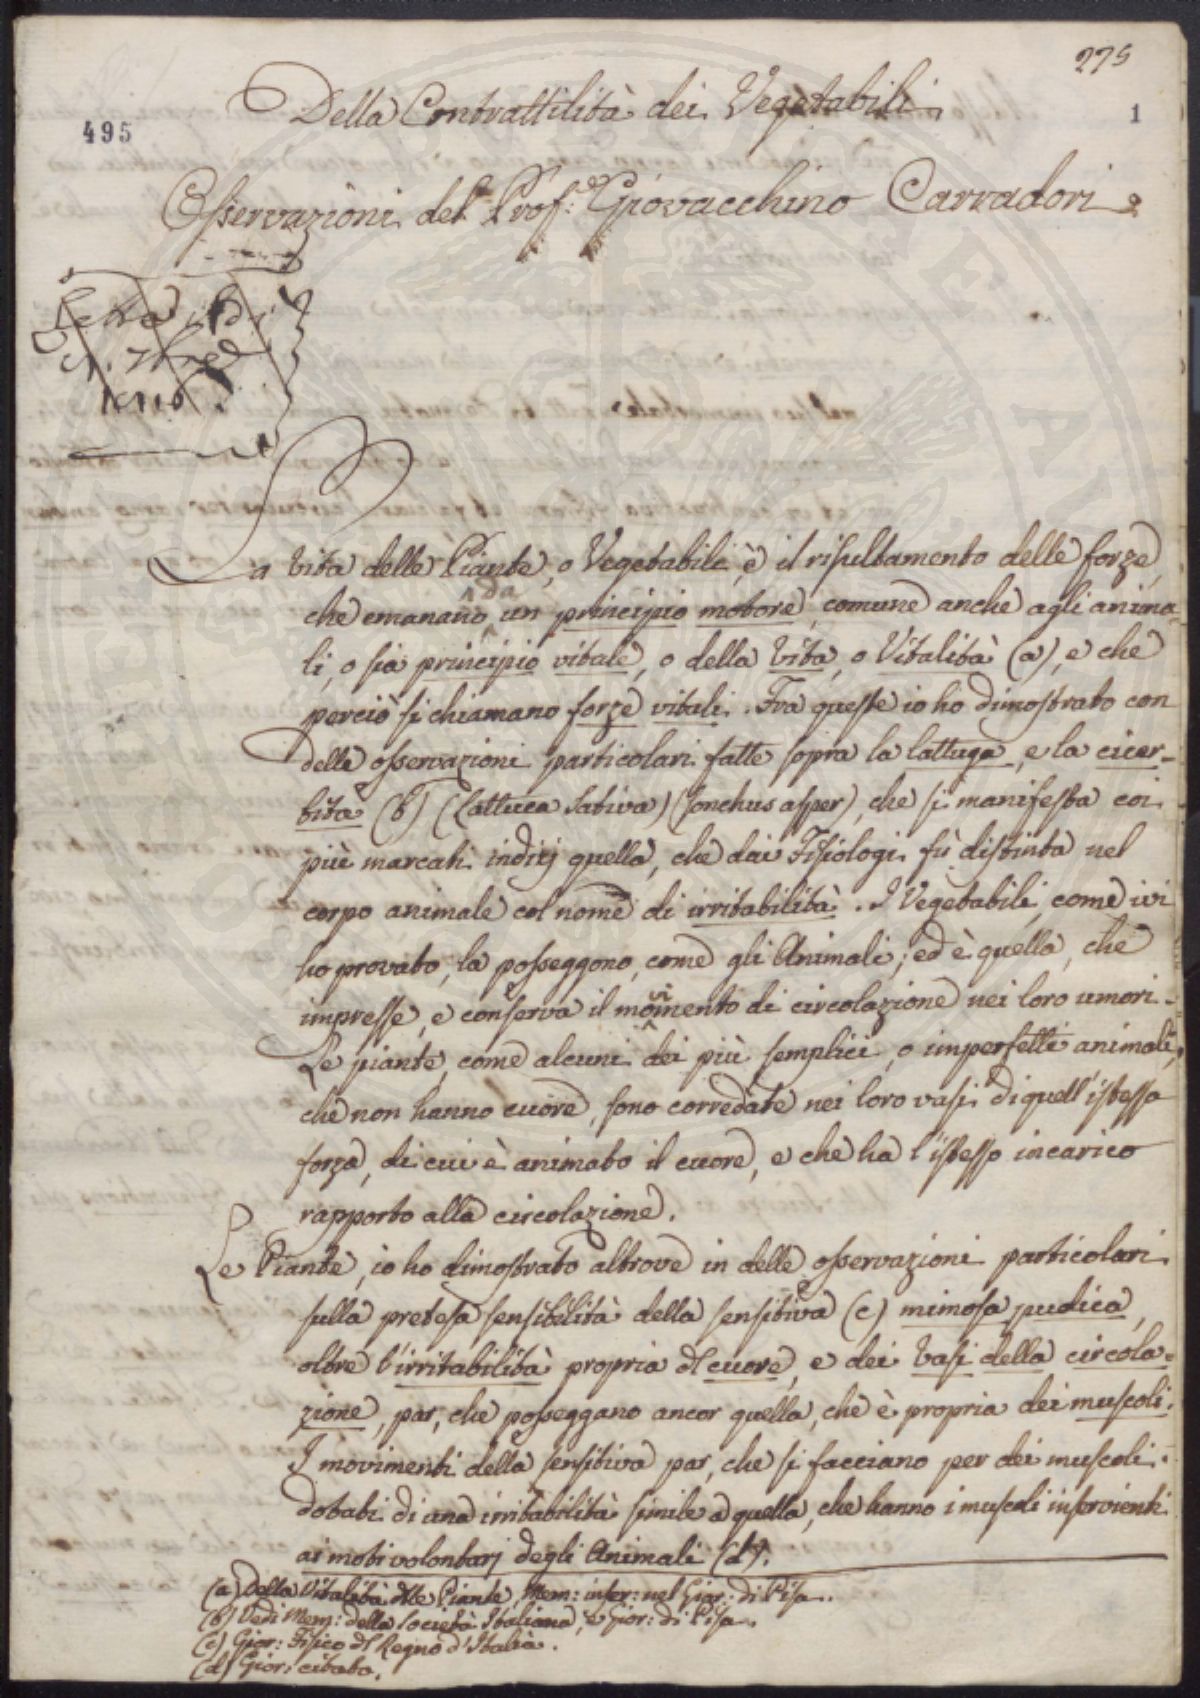 275
Della Contrattilità dei Vegetabili
495
1
Osservazioni del Prof: Giovacchino Carradori
La vita delle Piante, o Vegetabili, è il risultamento delle forze,
che emanano da un principio motore, comune anche agli anima-
li, o sia principio vitale, o della Vita, o Vitalità (a), e che
perciò si chiamano forze vitali. Fra queste io ho dimostrato con
delle osservazioni particolari fatte sopra la lattuga, e la cicer-
bita (b) (Lattuca Sativa) (Sonchus asper), che si manifesta coi
più marcati indizj quella, che dai Fisiologi fù distinta nel
corpo animale col nome di irritabilità. I Vegetabili, come ivi
ho provato, la posseggono, come gli Animali; ed è quella, che
impresse, e conserva il movimento di circolazione nei loro umori.
Le piante, come alcuni dei più semplici, o imperfetti animali,
che non hanno cuore, sono corredate nei loro vasi di quell'istessa
forza, di cui è animato il cuore, e che ha l'istesso incarico
rapporto alla circolazione.
Le Piante, io ho dimostrato altrove in delle osservazioni particolari
sulla pretesa sensibilità della sensitiva (c) mimosa pudica,
oltre l'irritabilità propria del cuore, e dei Vasi della circola-
zione, par, che posseggano ancor quella, che è propria dei muscoli.
I movimenti della sensitiva par, che si facciano per dei muscoli
dotati di una irritabilità simile a quella, che hanno i muscoli inservienti
ai moti volontarj degli Animali (d).
(a) Della Vitalità delle Piante, Mem: inser: nel Gior: di Pisa.
(b) Vedi Mem: della Società Italiana, e Gior: di Pisa.
(c) Gior: Fisico del Regno d'Italia.
(d) Gior: citato.